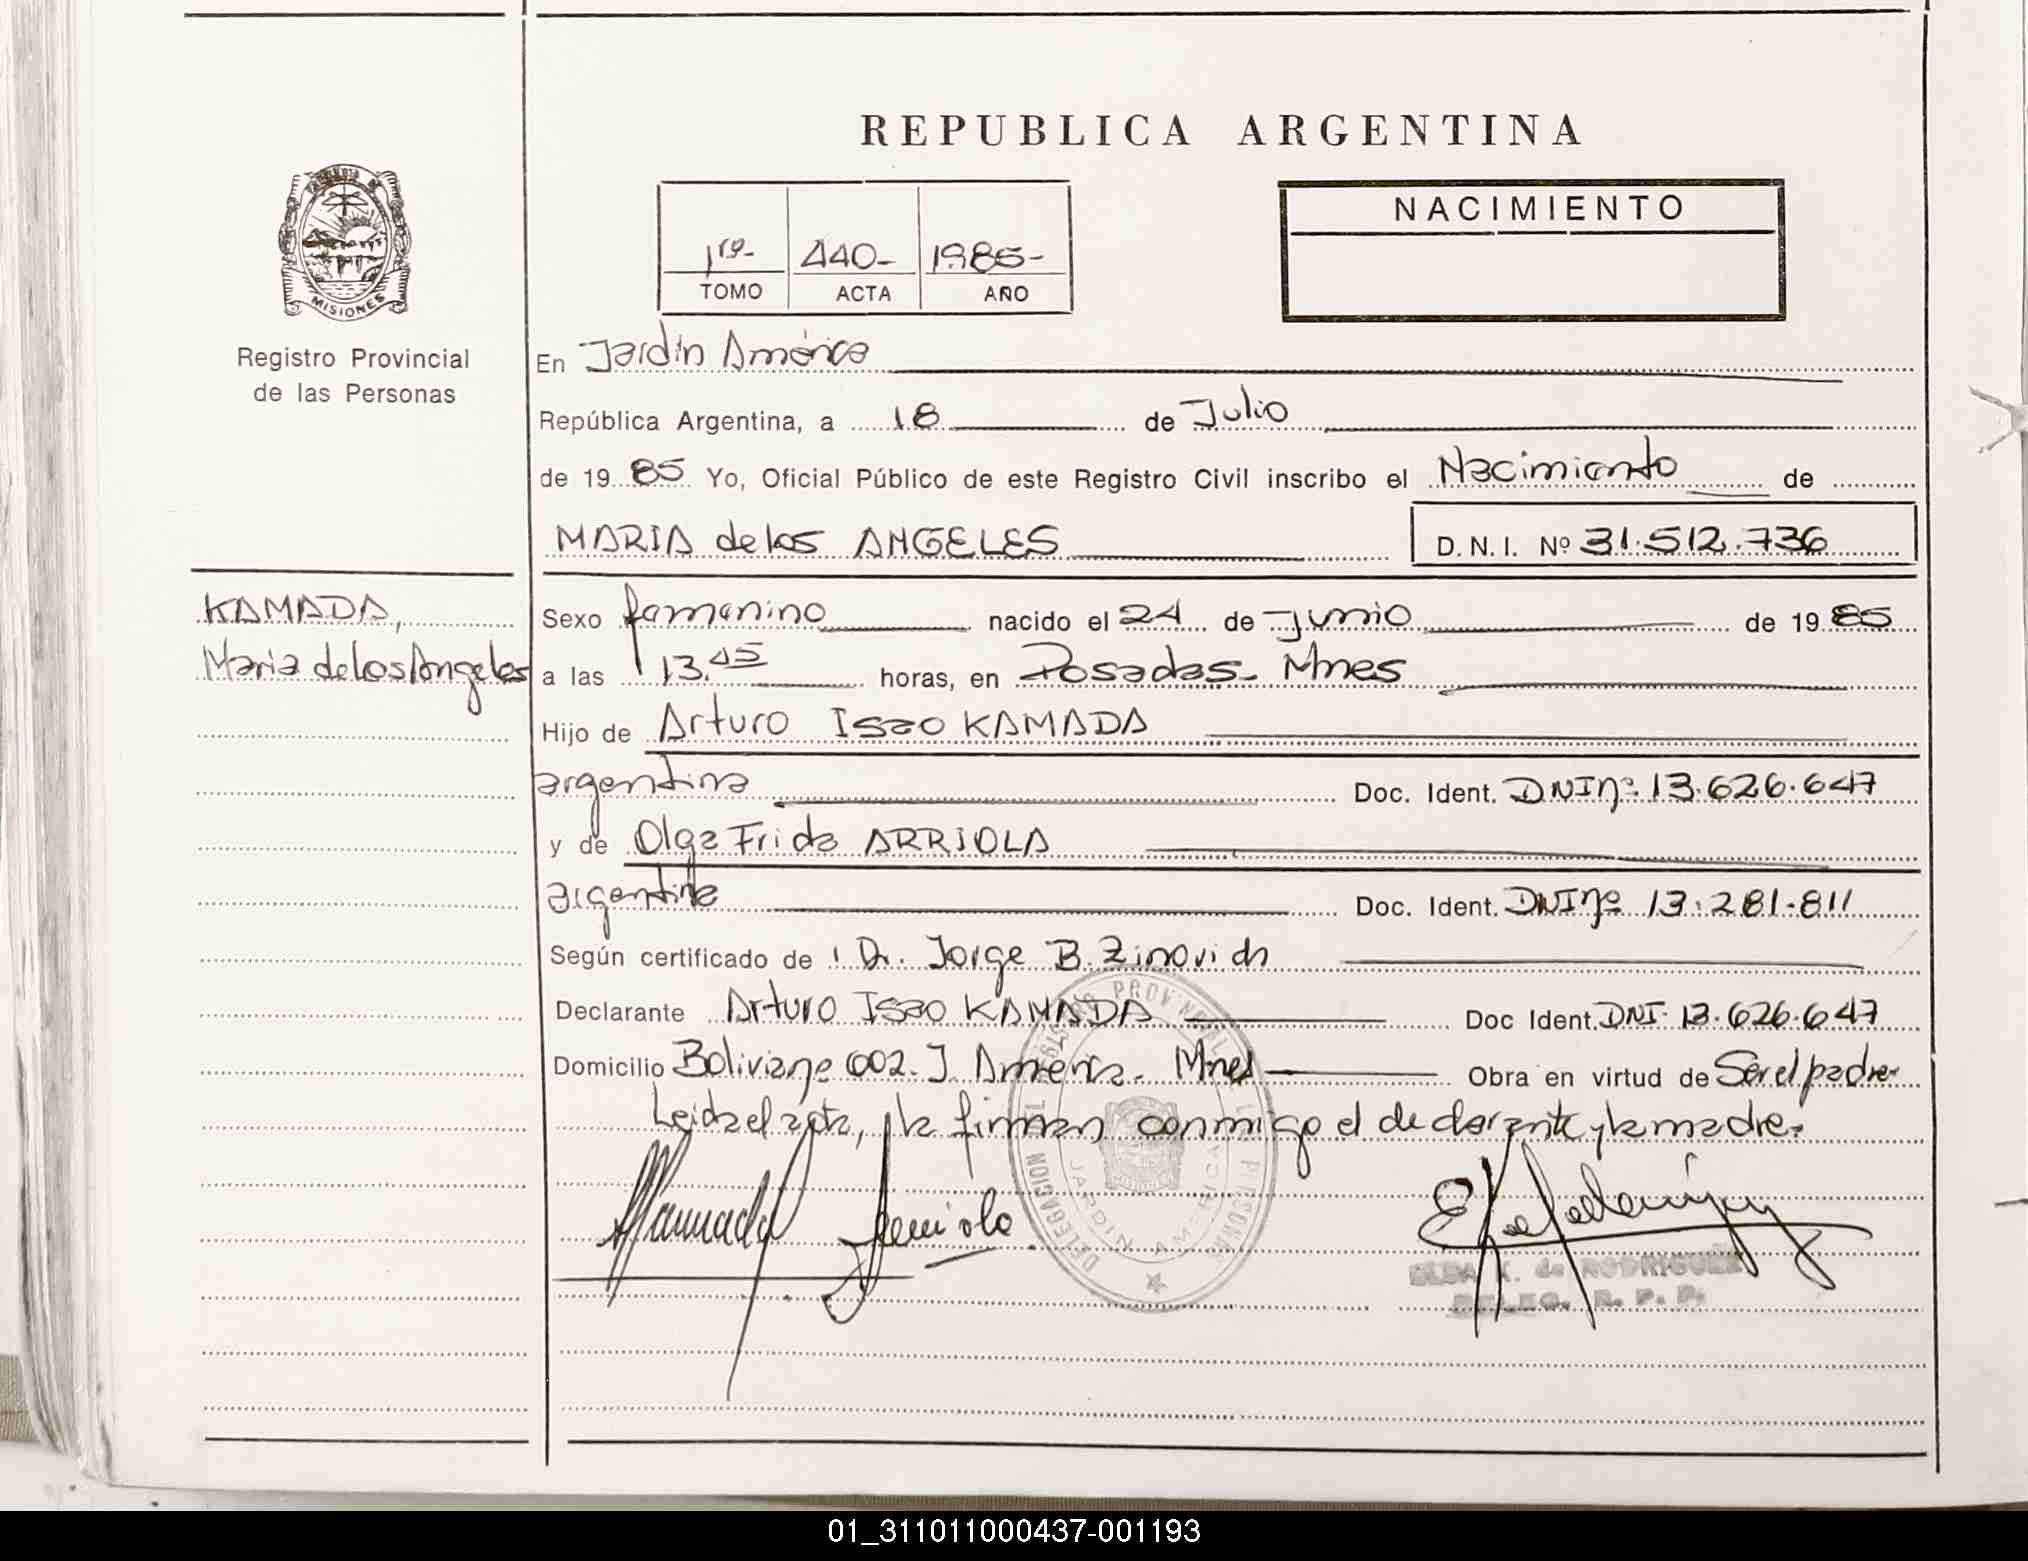 REPUBLICA ARGENTINA
NACIMIENTO
1ro- 440- 1985-
TOMO ACTA AÑO
PROVINCIA DE
MISIONES
Registro Provincial
de las Personas
En Jardín América
República Argentina, a 18 de Julio
de 1985 Yo, Oficial Público de este Registro Civil inscribo el Nacimiento de
MARIA de los ANGELES D.N.I. Nº 31.512.736
KAMADA,
Maria de Los Angeles
Sexo femenino nacido el 24 de Junio de 1985
a las 13.45 horas, en Posadas- Mnes
Hijo de Arturo Isao KAMADA
argentina Doc. Ident. DNI nº 13.626.647
y de Olga Frida ARRIOLA
argentina Doc. Ident. DNI nº 13.281.811
Según certificado de Dr. Jorge B. Zinovich
Declarante Arturo Isao KAMADA Doc Ident. DNI- 13.626.647
Domicilio 602. J. America. Mnes Obra en virtud de Ser el padre
Leida el acta, la firman conmigo el declarante y la madre.
Kamada Arriola
DELEGACION DEL REGISTRO PROVINCIAL DE LAS PERSONAS
JARDIN AMERICA
ELBA K. de RODRIGUEZ
DELEG. R. P. P.
01_311011000437-001193